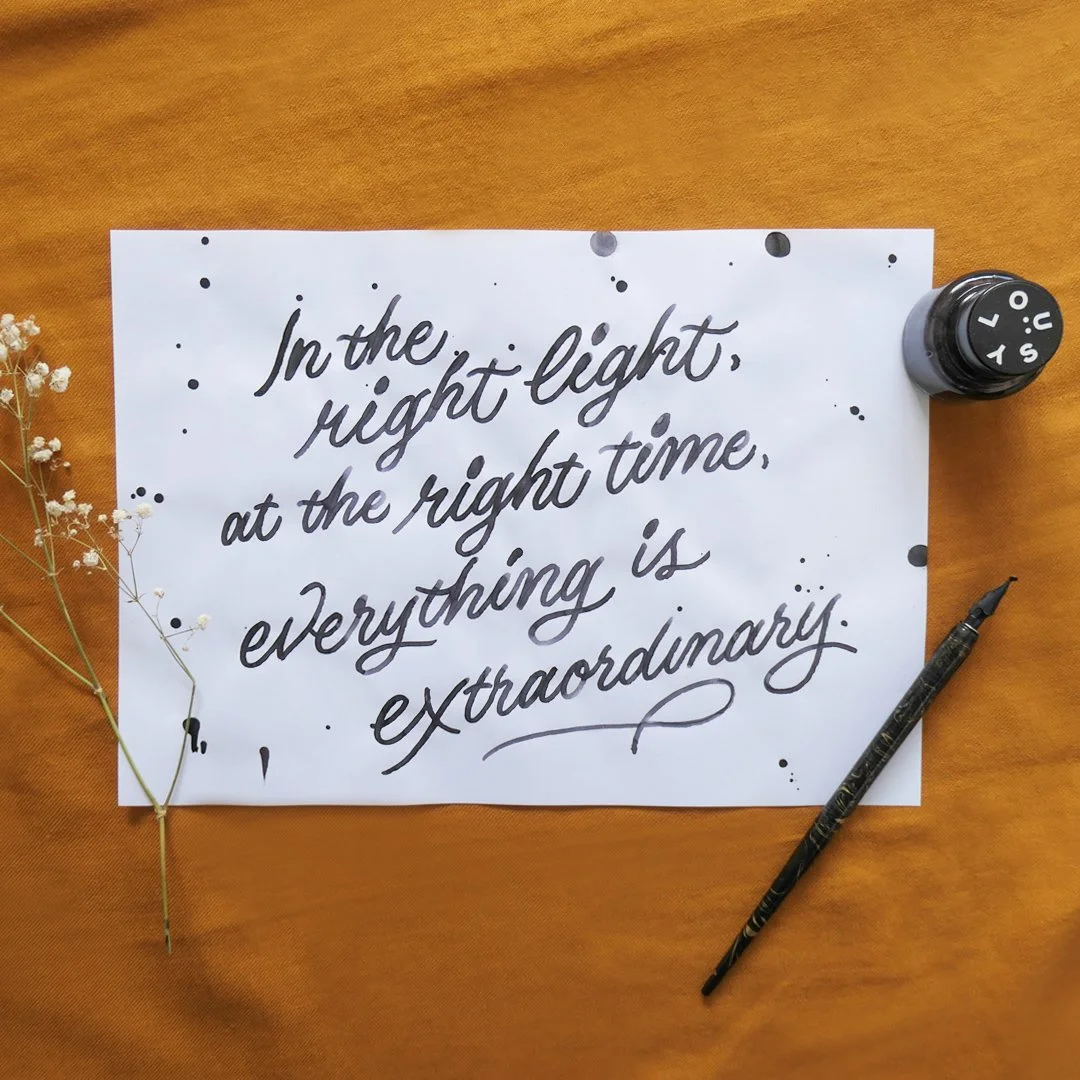 In the
right light,
at the right time,
everything is
extraordinary.
LOUSY